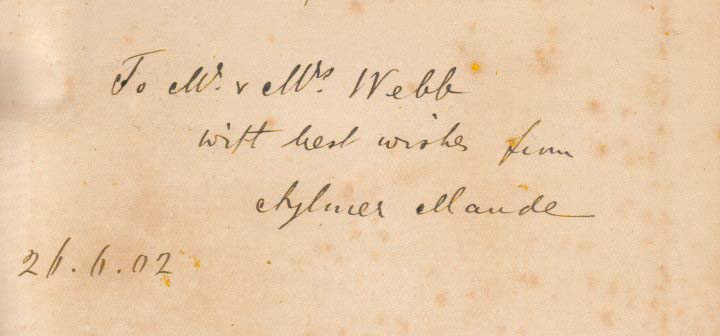 To Mr. & Mrs. Webb
with best wishes from
Aylmer Maude
26.6.02